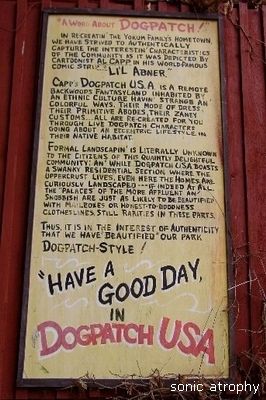 "A WORD ABOUT DOGPATCH!"
IN RE-CREATIN' THE YOKUM FAMILY'S HOMETOWN
WE HAVE STRIVED TO AUTHENTICALLY
CAPTURE THE INTERESTIN' CHARACTERISTICS
OF THE COMMUNITY AS IT WAS DEPICTED BY
CARTOONIST AL CAPP IN HIS WORLD-FAMOUS
COMIC STRIP "LI'L ABNER."
CAPP'S DOGPATCH U.S.A. IS A REMOTE
BACKWOODS FANTASYLAND INHABITED BY
AN ETHNIC CULTURE HAVIN' STRANGE AN'
COLORFUL WAYS. THEIR MODE OF DRESS,
THEIR PRIMITIVE ABODES, THEIR ZANEY
CUSTOMS... ALL ARE RE-CREATED FOR YOU
THROUGH LIVE DOGPATCH CHARACTERS
GOING ABOUT AN ECCENTRIC LIFESTYLE IN
THEIR NATIVE HABITAT.
FORMAL LANDSCAPIN' IS LITERALLY UNKNOWN
TO THE CITIZENS OF THIS QUAINTLY DELIGHTFUL
COMMUNITY; AN' WHILE DOGPATCH USA BOASTS
A SWANKY RESIDENTIAL SECTION WHERE THE
UPPERCRUST LIVES, EVEN HERE THE HOMES ARE
CURIOUSLY LANDSCAPED---IF INDEED AT ALL.
THE "PALACES" OF THE MORE AFFLUENT AN'
SNOBBISH ARE JUST AS LIKELY TO BE BEAUTIFIED
WITH MAILBOXES OR HONEST-TO-GOODNESS
CLOTHESLINES, STILL RARITIES IN THESE PARTS.
THUS, IT IS IN THE INTEREST OF AUTHENTICITY
THAT WE HAVE "BEAUTIFIED" OUR PARK
DOGPATCH-STYLE!
"HAVE A
GOOD DAY,
IN
DOGPATCH USA
sonic atrophy